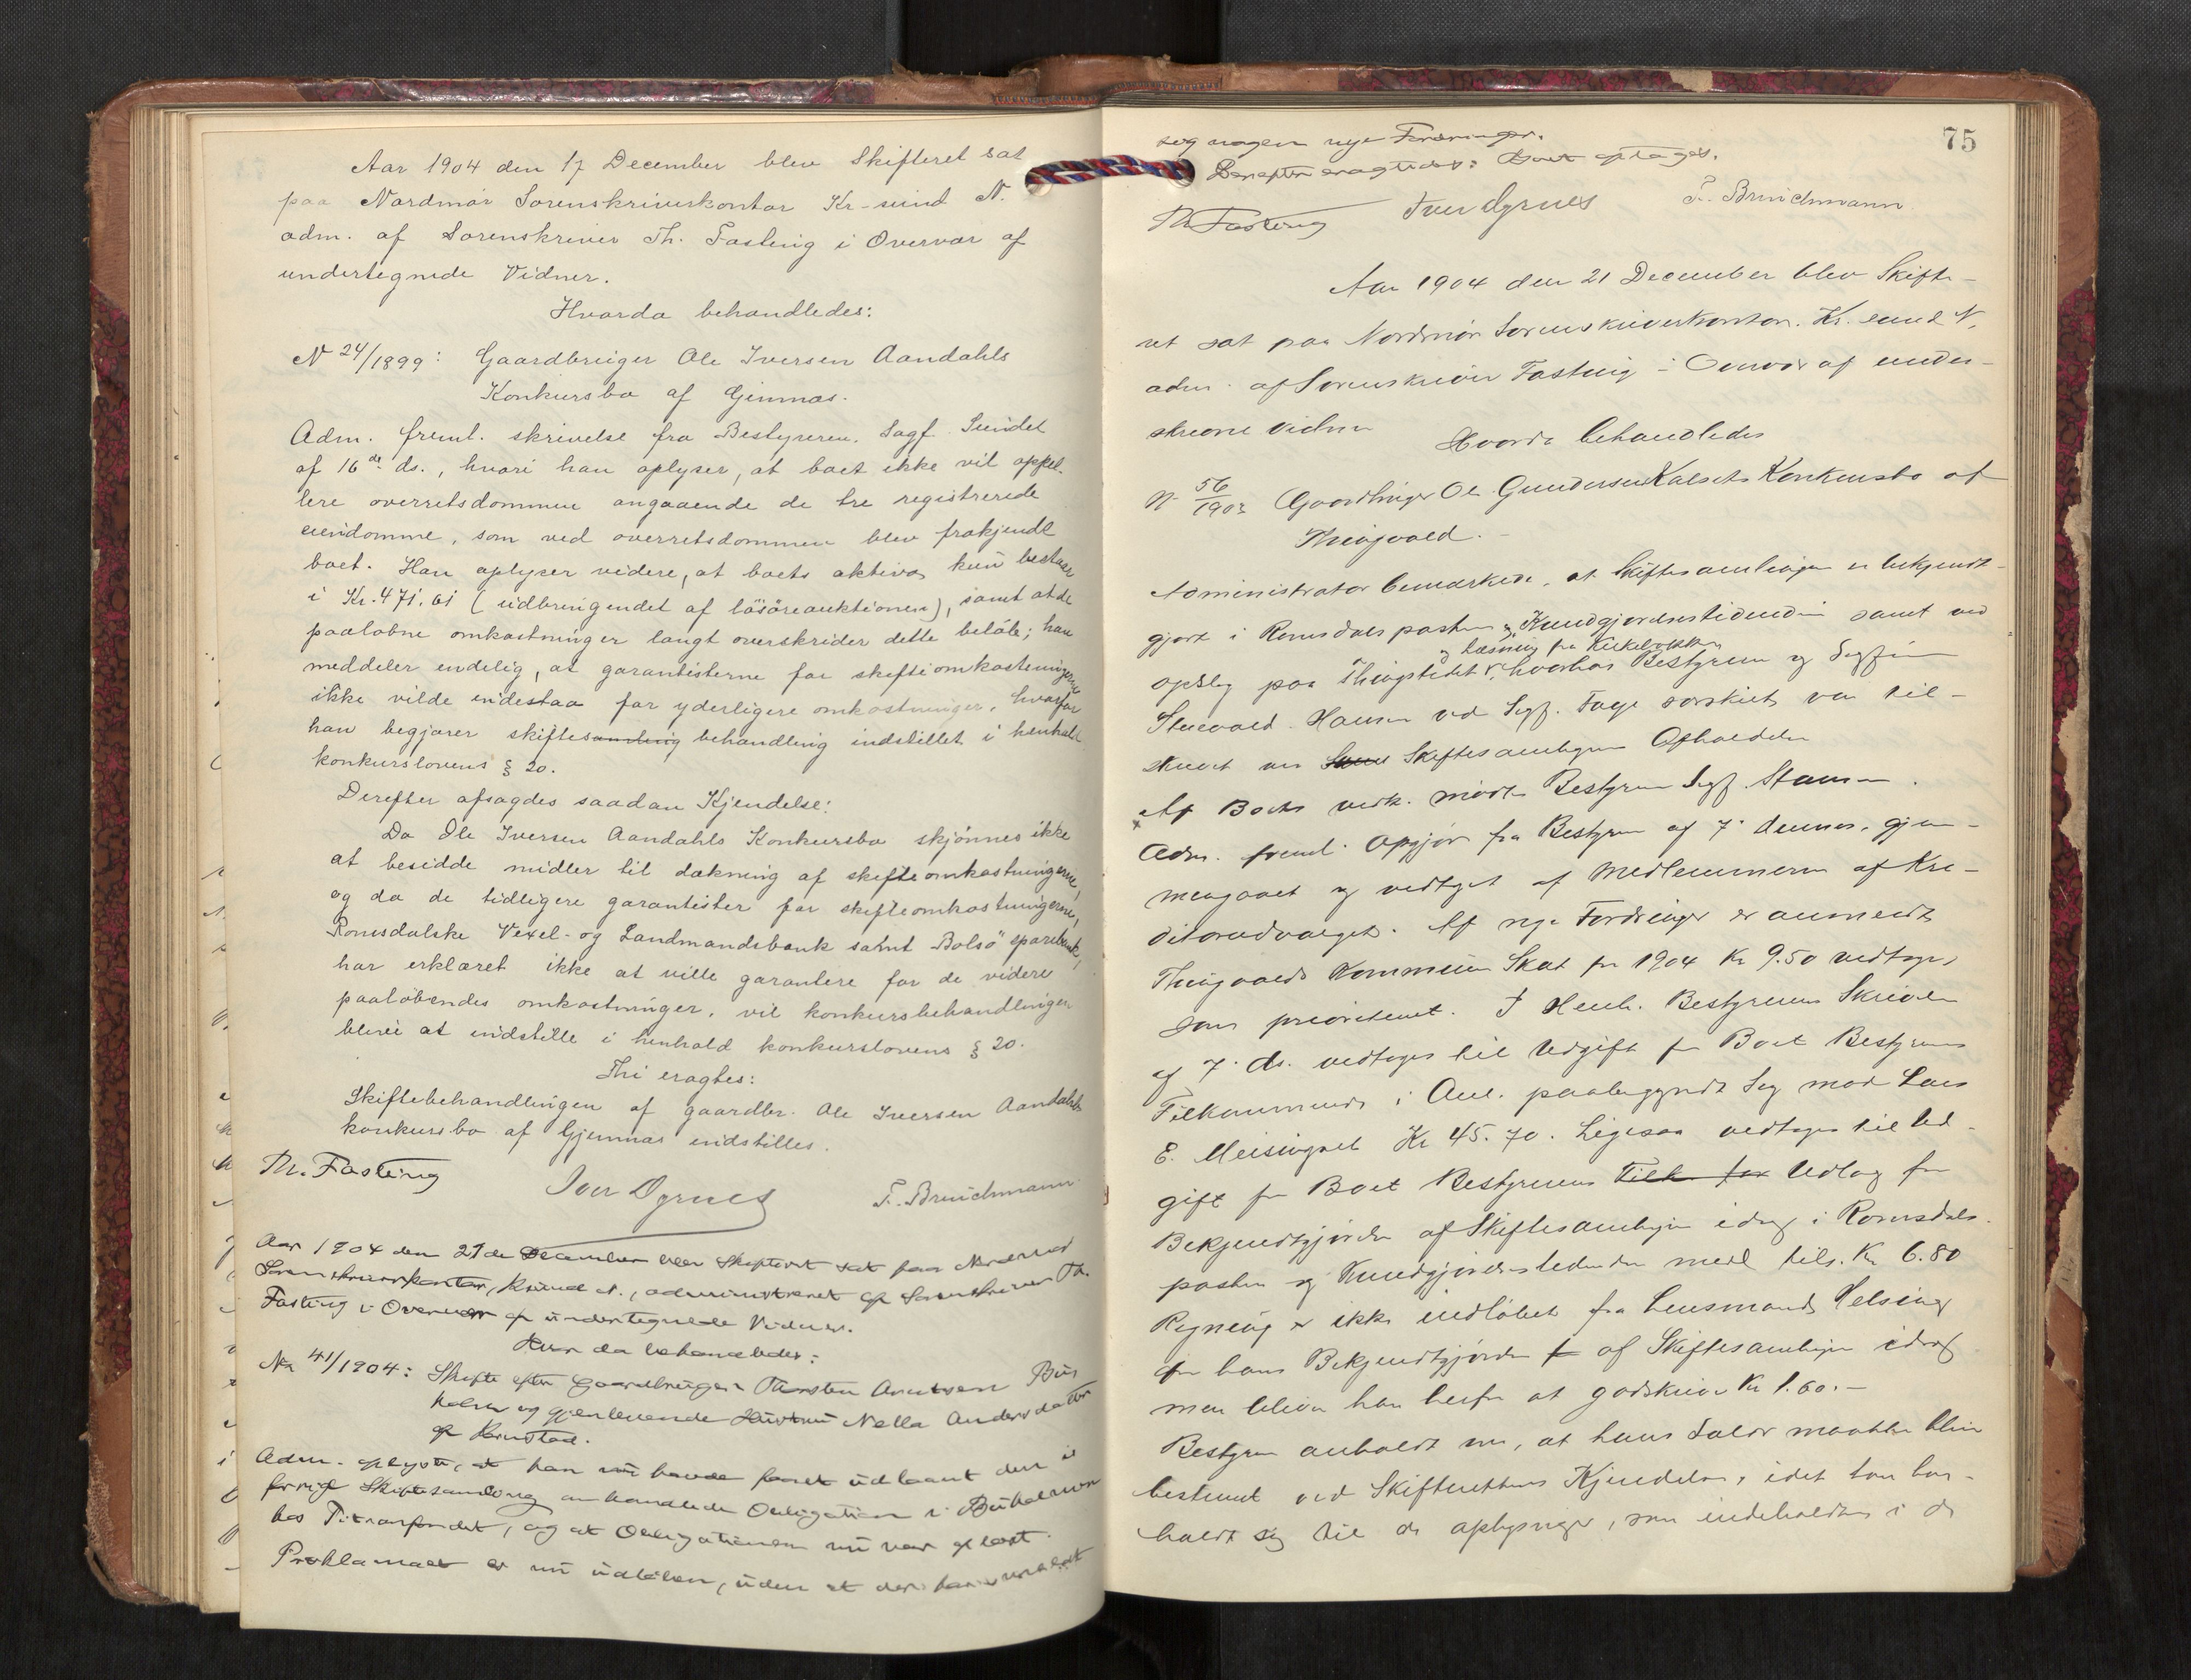 Aar 1904 den 17 December blev Skifteret sat
paa Nordmør Sorenskriverkontor Kr-sund N.
adm. af Sorenskriver Th. Fasting i Overvær af
undertegnede Vidner.
Hvorda behandledes:
N 24/1899: Gaardbruger Ole Iversen Aandahls
Konkursbo af Gimnæs.
Adm. freml. skrivelse fra Bestyreren, Sagf. Sundet
af 16de ds., hvori han oplyser, at boet ikke vil appel-
lere overretsdommen angaaende de tre registrerede
eiendomme, som ved overretsdommen blev frakjendt
boet. Han oplyser videre, at boets aktiva kun bestaar
i Kr. 471.61 (udbringendet af løsøreauktionen), samt at de
paaløbne omkostninger langt overskrider dette beløb; han
meddeler endelig, at garantisterne for skifteomkostningerne
ikke vilde indestaa for yderligere omkostninger, hvorfor
han begjærer skiftesamling behandling indstillet i henhold
konkurslovens § 20.
Derefter afsagdes saadan Kjendelse:
Da Ole Iversen Aandahls Konkursbo skjønnes ikke
at besidde midler til dækning af skifteomkostningerne,
og da de tidligere garantister for skifteomkostningerne,
Romsdalske Vexel- og Landmandsbank samt Bolsø sparebank,
har erklæret ikke at ville garantere for de videre
paaløbendes omkostninger, vil konkursbehandlingen
blive at indstille i henhold konkurslovens § 20.
Thi eragtes:
Skiftebehandlingen af gaardbr. Ole Iversen Aandahls
konkursbo af Gjemnæs indstilles.
Th. Fasting Iver Dyrnes F. Brüichmann
Aar 1904 den 21de December blev Skifteret sat paa Nordmør
Sorenskriverkontor, Krsund N., administreret af Sorenskriver Th.
Fasting i Overvær af undertegnede Vidner.
Hvor da behandledes:
No 41/1904: Skifte efter Gaardbruger Thorsten Arntsen Bu-
holm og gjenlevende Hustru Nella Andersdatter
af
Adm. oplyste, at han nu havde faaet udlaant den i
forrige Skiftesamling omhandlede Obligation i Buholmen
hos, og at Obligationen nu var aflæst.
Proklamaet er nu udløben, uden at der har meldt
seg nogen nye Fordringer.
Derefter eragtedes: Boet optages.
Th Fasting Iver Dyrnes F. Brüichmann
75
Aar 1904 den 21 December blev Skifte-
ret sat paa Nordmør Sorenskriverkontor. Kr.sund N,
adm. af Sorenskriver Fasting i Overvær af under-
skrevne Vidner
Hvorda behandledes
N 56/1903 Gaardbruger Ole Gundersen Kalsets Konkursbo af
Thingvold.
Administrator bemærkede, at Skiftesamlingen er bekjendt-
gjort i Romsdalsposten og Kundgjørelsestidenden samt ved
og Læsning fra Kirkebakken
opslag paa Thingstedet, hvorhos Bestyreren og Sagfører
Stuevold Hansen ved Sagf. Fage særskilt var til-
skrevet om Skiftesamlingens Afholdelse
Af Boets vedk. mødte Bestyreren Sagf.
Adm. freml. Opgjør fra Bestyreren af 7 dennes, gjen-
nemgaaet og vedtaget af Medlemmerne af Kre-
ditorudvalget. Af nye Fordringer er anmeldt
Thingvolds Kommunes Skat for 1904 Kr 9.50 vedtoges
som prioriteret. I Henh. Bestyrerens Skrivelse
af 7 ds. vedtoges til Udgift for Boet Bestyrerens
Tilkommende i Anl. paabegyndt Sag mod Lars
E. Meisingset Kr 45.70. Ligesaa vedtoges til Ud-
gift for Boet Bestyrerens Tilk for Udlæg for
Bekjendtgjørelse af Skiftesamlingen idag i Romsdals-
posten og Kundgjørelsestidenden med tils. Kr 6.80
Regning er ikke indløbet fra Lensmand Helsing
for hans Bekjendtgjørelse af Skiftesamlingen idag
men bliver han herfor at godskrive Kr 1.60.-
Bestyreren anholdt om, at hans Salær maatte blive
bestemt ved Skifterettens Kjendelse, idet han hen-
holdt sig til de oplysninger, som indeholdtes i de